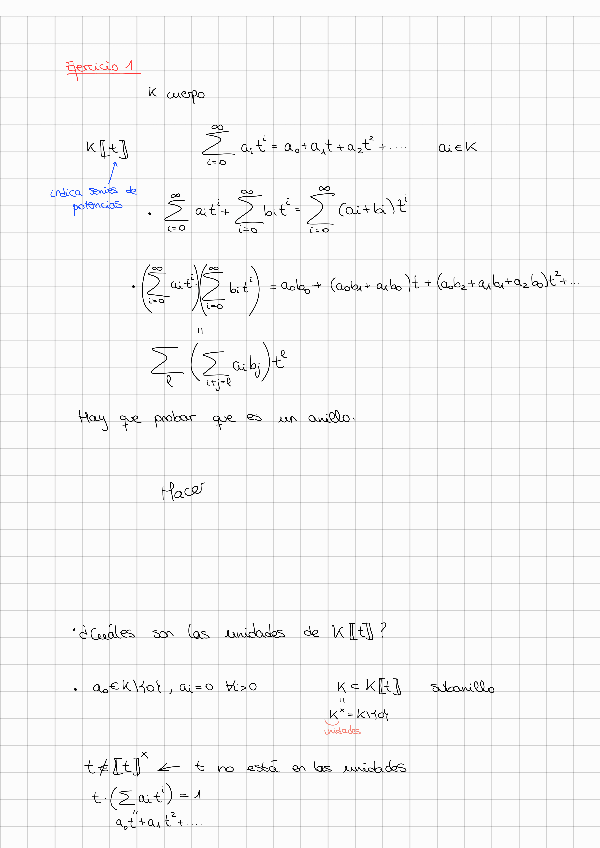 Ejercicio 1
K cuerpo
K⟦t⟧ ∑_{i=0}^{∞} a_i t^i = a_0 + a_1 t + a_2 t^2 + .... a_i ∈ K
indica series de
potencias
· ∑_{i=0}^{∞} a_i t^i + ∑_{i=0}^{∞} b_i t^i = ∑_{i=0}^{∞} (a_i + b_i) t^i
· (∑_{i=0}^{∞} a_i t^i)(∑_{i=0}^{∞} b_i t^i) = a_0 b_0 + (a_0 b_1 + a_1 b_0) t + (a_0 b_2 + a_1 b_1 + a_2 b_0) t^2 + ...
=
∑_ℓ (∑_{i+j=ℓ} a_i b_j) t^ℓ
Hay que probar que es un anillo.
Hacer
· ¿Cuáles son las unidades de K⟦t⟧?
· a_0 ∈ K\{0}, a_i = 0 ∀i>0 K ⊂ K⟦t⟧ subanillo
=
K^x = K\{0}
unidades
t ∉ ⟦t⟧^x ← t no está en las unidades
t · (∑ a_i t^i) = 1
=
a_0 t + a_1 t^2 + ....